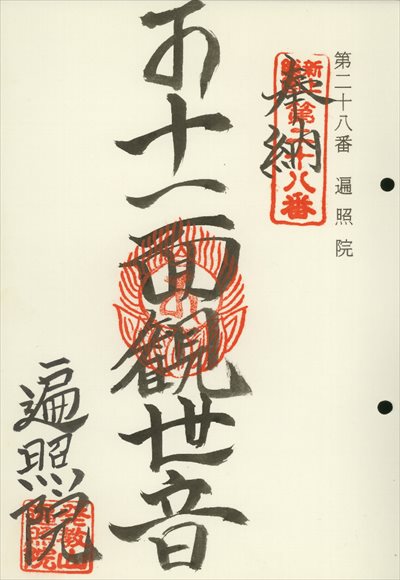 第二十八番 遍照院
奉納
第二十八番
十一面観世音
遍照院